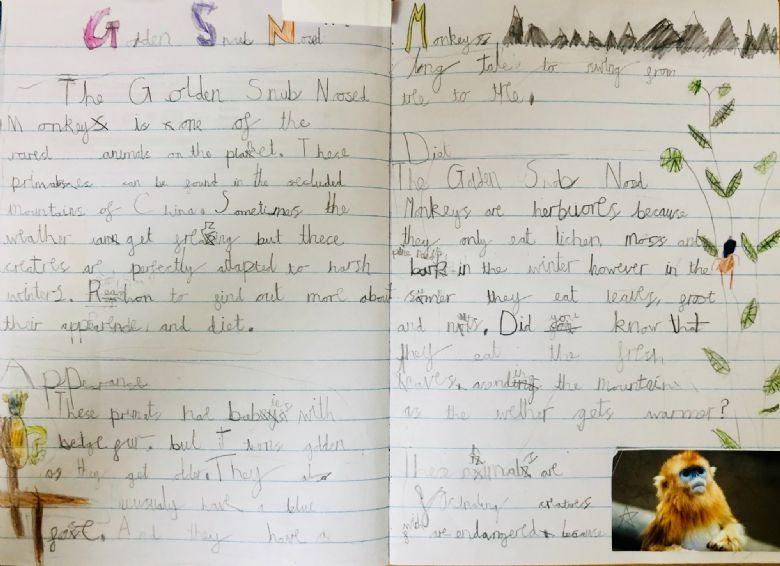 Golden Snub Nosd
The Golden Snub Nosed
Monkey is one of the
rarest animals on the planet. These
primates can be found in the secluded
mountains of China. Sometimes the
weather can get freezing but these
creatres are perfectly adapted to harsh
winters. Read on to find out more about
their appearence and diet.
Appearanse
These primats hae babies with
bedge fur. but it turns golden
as they get older. They
ususaly have a blue
face. And they have a
Monkeys
long tale to swing from
tree to tree.
Diet
The Golden Snub Nosd
Monkeys are herbuores because
they only eat lichen moss and
pine needles
bark in the winter however in the
summer they eat leaves, froot
and nuts. Did you know that
they eat the fresh
leaves, the mountain
as the wether gets warmer?
These are
creatures
are endangered because